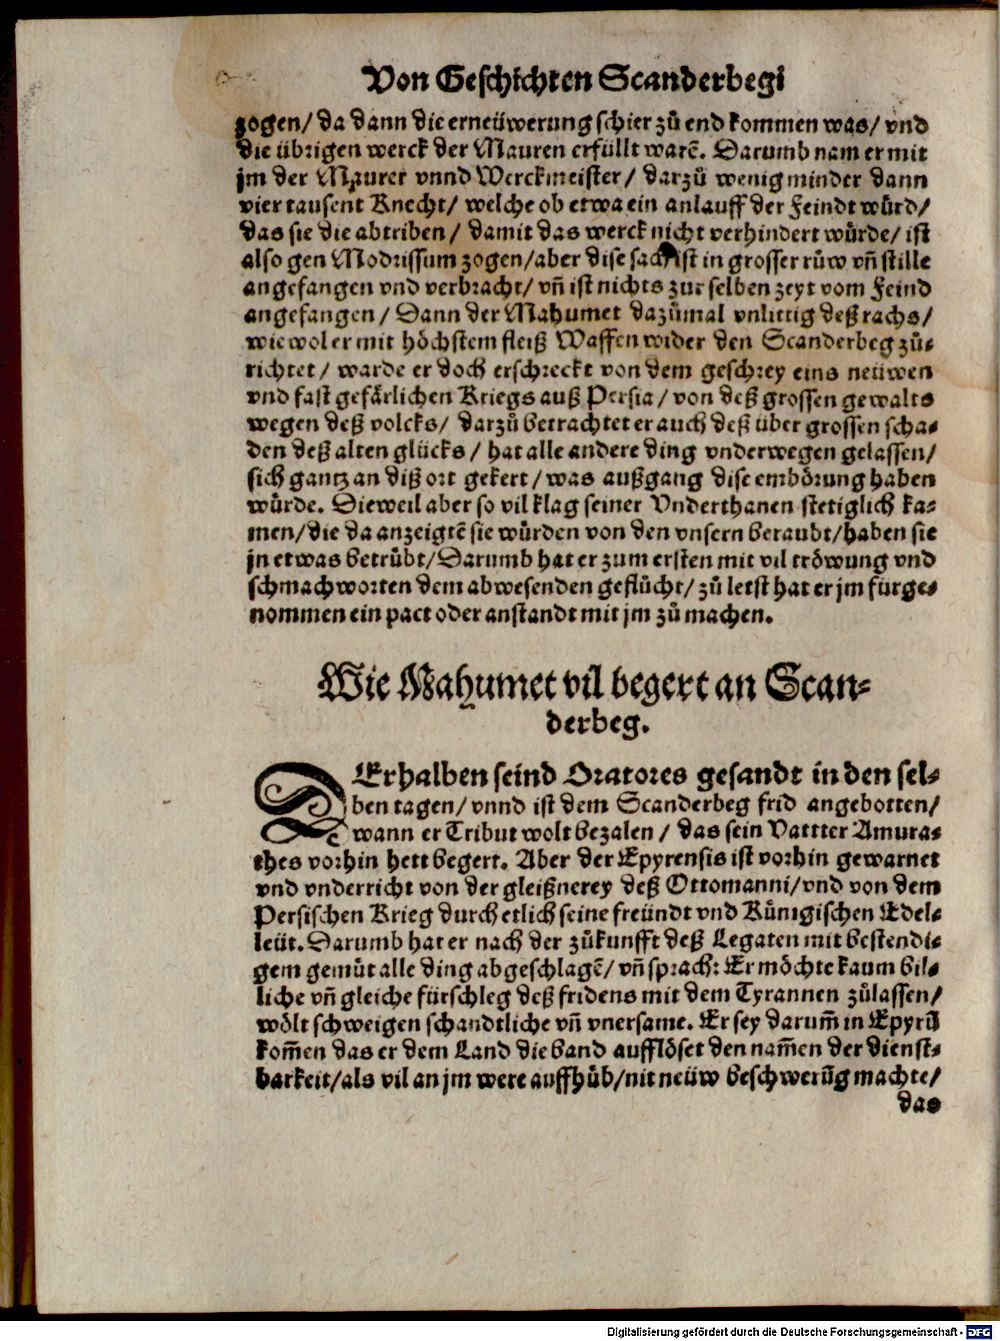 Von Geschichten Scanderbegi
zogen/ da dann die erneüwerung schier zů end kommen was/ vnd
die übrigen werck der Mauren erfüllt warẽ. Darumb nam er mit
jm der Maurer vnnd Werckmeister/ darzů wenig minder dann
vier tausent Knecht/ welche ob etwa ein anlauff der Feindt würd/
das sie die abtriben/ damit das werck nicht verhindert würde/ ist
also gen Modrissum zogen/aber dise sach ist in grosser růw vñ stille
angefangen vnd verbracht/ vñ ist nichts zur selben zeyt vom Feind
angefangen/ Dann der Mahumet dazůmal vnlittig deß rachs/
wie wol er mit höchstem fleiß Waffen wider den Scanderbeg zů⸗
richtet/ warde er doch erschreckt von dem geschrey eins neüwen
vnd fast gefärlichen Kriegs auß Persia/ von deß grossen gewalts
wegen deß volcks/ darzů betrachtet er auch deß über grossen scha⸗
den deß alten glücks/ hat alle andere ding vnderwegen gelassen/
sich gantz an diß ort gekert/ was außgang dise embörung haben
würde. Dieweil aber so vil klag seiner Vnderthanen stetiglich ka⸗
men/die da anzeigtẽ sie würden von den vnsern beraubt/haben sie
jn etwas betrübt/Darumb hat er zum ersten mit vil tröwung vnd
schmachworten dem abwesenden geflücht/ zů letst hat er jm fürge⸗
nommen ein pact oder anstandt mit jm zů machen.
Wie Mahumet vil begert an Scan⸗
derbeg.
DErhalben seind Oratores gesandt in den sel⸗
ben tagen/ vnnd ist dem Scanderbeg frid angebotten/
wann er Tribut wolt bezalen/ das sein Vattter Amura⸗
thes vorhin hett begert. Aber der Epyrensis ist vorhin gewarnet
vnd vnderricht von der gleißnerey deß Ottomanni/vnd von dem
Persischen Krieg durch etlich seine freündt vnd Künigischen Edel⸗
leüt. Darumb hat er nach der zůkunfft deß Legaten mit bestendi⸗
gem gemüt alle ding abgeschlagẽ/ vñ sprach: Er möchte kaum bil⸗
liche vñ gleiche fürschleg deß fridens mit dem Tyrannen zůlassen/
wölt schweigen schandtliche vñ vnersame. Er sey darum̃ in Epyrũ
kom̃en das er dem Land die band aufflöset den nam̃en der dienst⸗
barkeit/als vil an jm were auffhüb/nit neüw beschwerũg machte/
das
Digitalisierung gefördert durch die Deutsche Forschungsgemeinschaft - DFG